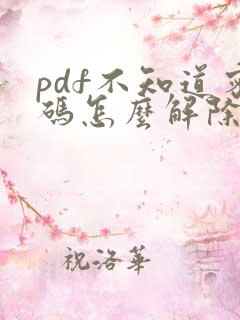 pdf不知道密
碼怎麼解除
祝洛華